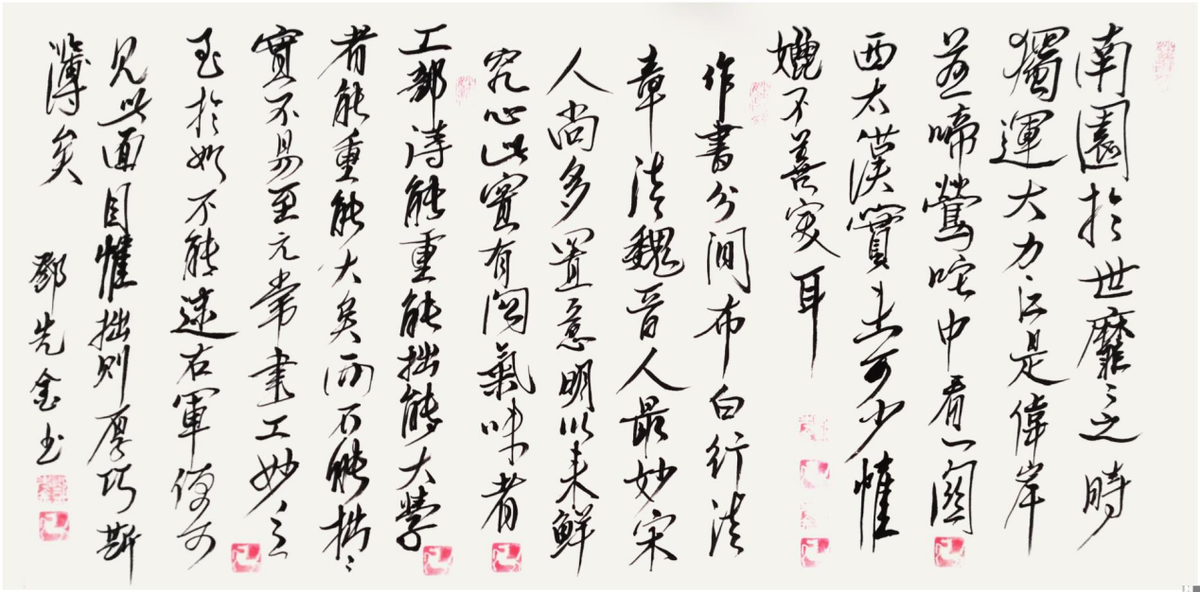 南園於世靡〻之時
獨運大力〻正是偉岸
並啼鶯咤中看一關
西太漢實未可少惟
嬎不善变耳
作書分間布白行法
章法魏晋人最妙宋
人尚多置意明以来鮮
究心此實有関氣味者
工部詩能重能拙能大學
者能重能大矣而不能拙〻
實不易至元常書工妙之
至於如不能逮右軍便可
見此面目惟拙則厚巧斯
薄矣
鄧先金书